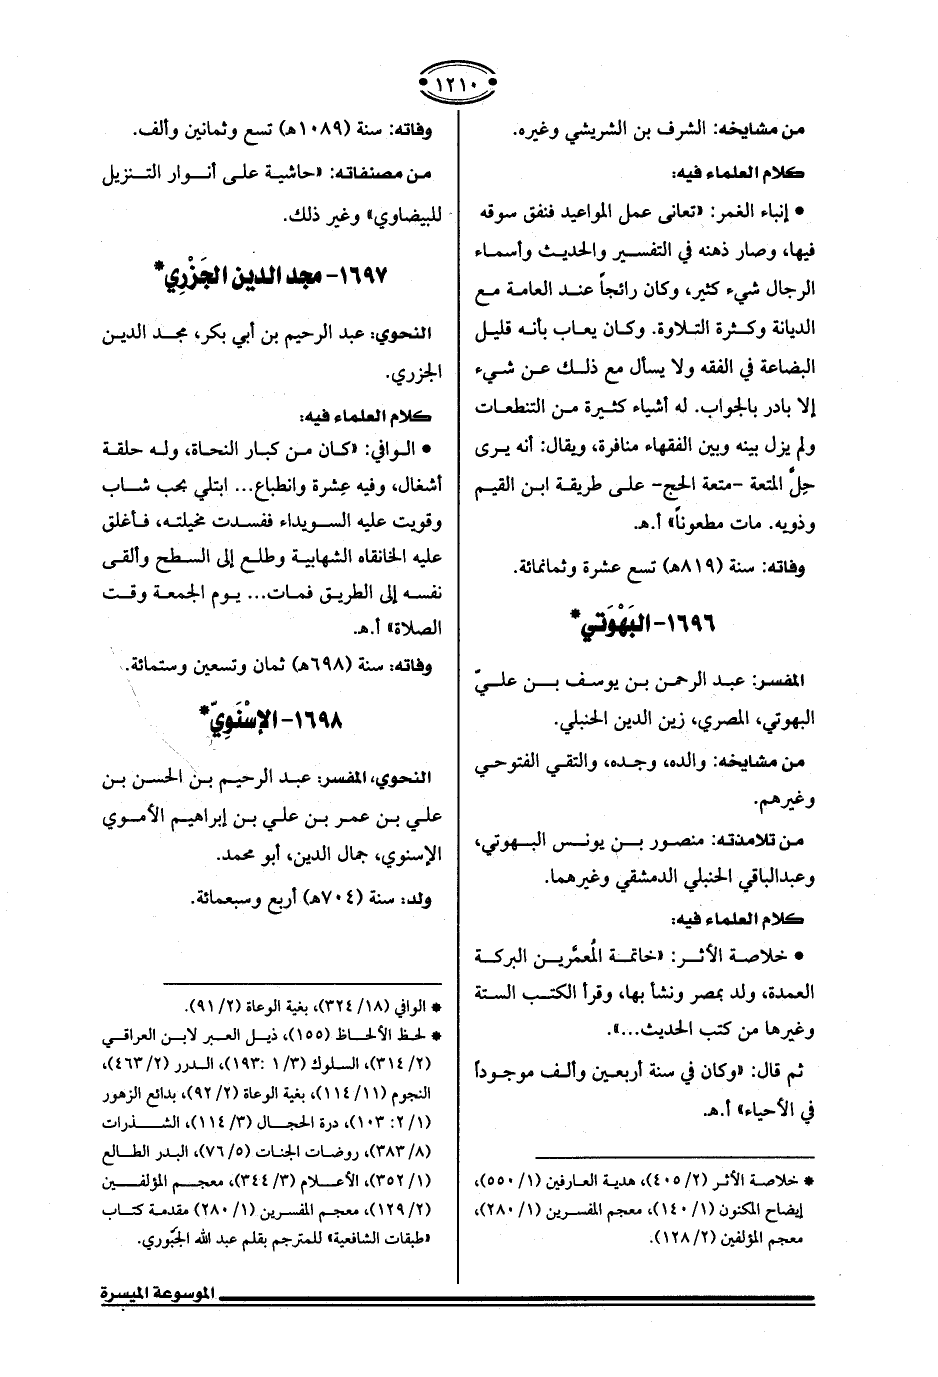 ١٢١٠
من مشايخه: الشرف بن الشريشي وغيره.
كلام العلماء فيه:
• إنباء الغمر: «تعانى عمل المواعيد فنفق سوقه
فيها، وصار ذهنه في التفسير والحديث وأسماء
الرجال شيء كثير، وكان رائجاً عند العامة مع
الديانة وكثرة التلاوة. وكان يعاب بأنه قليل
البضاعة في الفقه ولا يسأل مع ذلك عن شيء
إلا بادر بالجواب. له أشياء كثيرة من التنطعات
ولم يزل بينه وبين الفقهاء منافرة، ويقال: أنه يرى
حِلَّ المتعة -متعة الحج- على طريقة ابن القيم
وذويه. مات مطعوناً» أ.هـ.
وفاته: سنة (٨١٩هـ) تسع عشرة وثمانمائة.
١٦٩٦- البَهُوَتي*
المفسر: عبد الرحمن بن يوسف بن عليّ
البهوتي، المصري، زين الدين الحنبلي.
من مشايخه: والده، وجده، والتقي الفتوحي
وغيرهم.
من تلامذته: منصور بن يونس البهوتي،
وعبدالباقي الحنبلي الدمشقي وغيرهما.
كلام العلماء فيه:
• خلاصة الأثر: «خاتمة المُعمَّرين البركة
العمدة، ولد بمصر ونشأ بها، وقرأ الكتب الستة
وغيرها من كتب الحديث...».
ثم قال: «وكان في سنة أربعين وألف موجوداً
في الأحياء» أ.هـ.
* خلاصة الأثر (٢/ ٤٠٥)، هدية العارفين (١/ ٥٥٠)،
إيضاح المكنون (١/ ١٤٠)، معجم المفسرين (١/ ٢٨٠)،
معجم المؤلفين (٢/ ١٢٨).
وفاته: سنة (١٠٨٩هـ) تسع وثمانين وألف.
من مصنفاته: «حاشية على أنوار التنزيل
للبيضاوي» وغير ذلك.
١٦٩٧- مجد الدين الجَزْرِي*
النحوي: عبد الرحيم بن أبي بكر، مجد الدين
الجزري.
كلام العلماء فيه:
• الوافي: «كان من كبار النحاة، وله حلقة
أشغال، وفيه عِشرة وانطباع... ابتلي بحب شاب
وقويت عليه السويداء ففسدت مخيلته، فأغلق
عليه الخانقاه الشهابية وطلع إلى السطح وألقى
نفسه إلى الطريق فمات... يوم الجمعة وقت
الصلاة» أ.هـ.
وفاته: سنة (٦٩٨هـ) ثمان وتسعين وستمائة.
١٦٩٨- الإسْنَوِيّ*
النحوي، المفسر: عبد الرحيم بن الحسن بن
علي بن عمر بن علي بن إبراهيم الأموي
الإسنوي، جمال الدين، أبو محمد.
ولد: سنة (٧٠٤هـ) أربع وسبعمائة.
* الوافي (١٨/ ٣٢٤)، بغية الوعاة (٢/ ٩١).
* لحظ الألحاظ (١٥٥)، ذيل العبر لابن العراقي
(٢/ ٣١٤)، السلوك (٣/ ١: ١٩٣)، الدرر (٢/ ٤٦٣)،
النجوم (١١/ ١١٤)، بغية الوعاة (٢/ ٩٢)، بدائع الزهور
(١/ ٢: ١٠٣)، درة الحجال (٣/ ١١٤)، الشذرات
(٨/ ٣٨٣)، روضات الجنات (٥/ ٧٦)، البدر الطالع
(١/ ٣٥٢)، الأعلام (٣/ ٣٤٤)، معجم المؤلفين
(٢/ ١٢٩)، معجم المفسرين (١/ ٢٨٠) مقدمة كتاب
«طبقات الشافعية» للمترجم بقلم عبد الله الجبّوري.
الموسوعة الميسرة